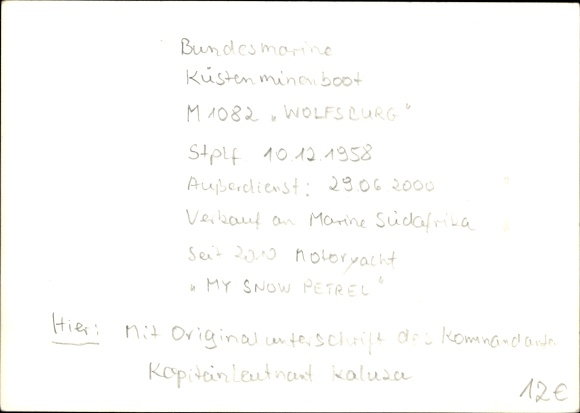 Bundesmarine
Küstenminenboot
M 1082 „WOLFSBURG"
Stplf 10.12.1958
Außerdienst: 29.06.2000
Verkauf an Marine Südafrika
Seit 2010 Motoryacht
„MY SNOW PETREL"
Hier: Mit Originalunterschrift des Kommandanten
Kapitänleutnant Kaluza
12€